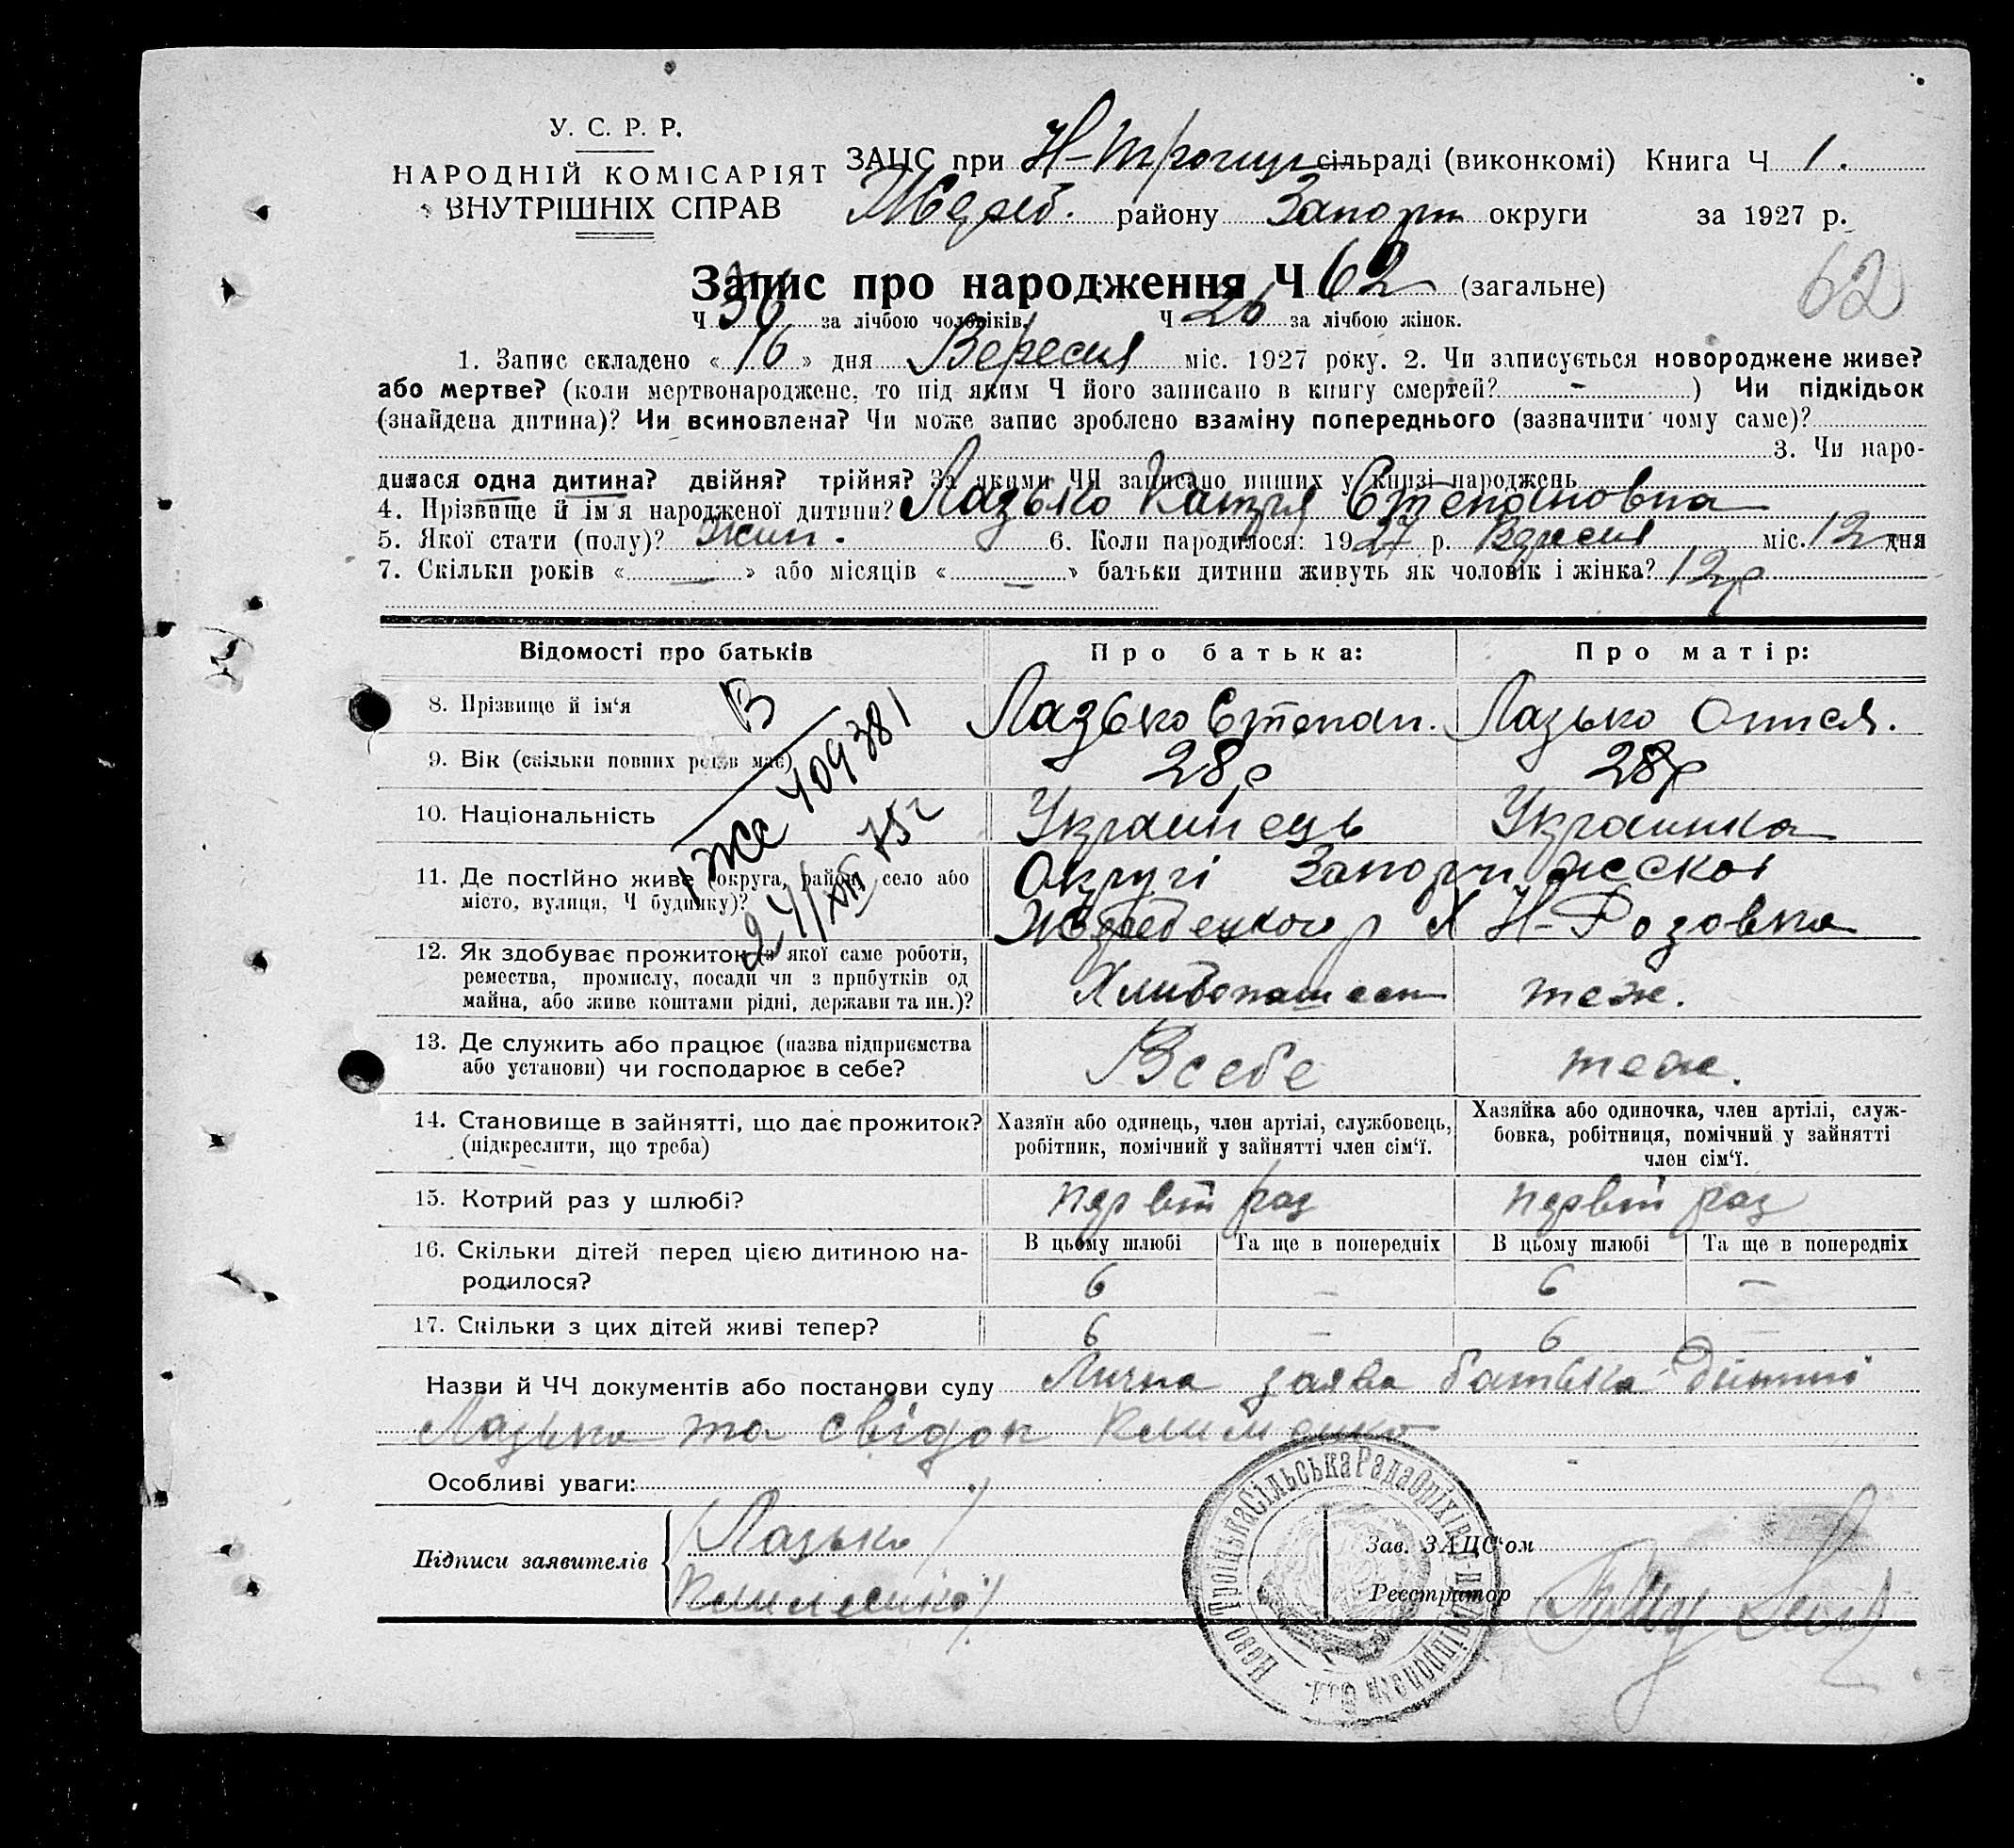 У. С. Р. Р.
НАРОДНІЙ КОМІСАРІЯТ
ВНУТРІШНІХ СПРАВ
ЗАЦС при Н-Троиц сільраді (виконкомі) Книга Ч 1.
Жереб. району Запорж округи за 1927 р.
Запис про народження Ч 62 (загальне)
62
Ч 36 за лічбою чоловіків. Ч 26 за лічбою жінок.
1. Запис складено «16» дня Вересня міс. 1927 року. 2. Чи записується новороджене живе?
або мертве? (коли мертвонароджене, то під яким Ч його записано в книгу смертей? - ) Чи підкідьок
(знайдена дитина)? Чи всиновлена? Чи може запис зроблено взаміну попереднього (зазначити чому саме)?
3. Чи наро-
дилася одна дитина? двійня? трійня? За якими ЧЧ записано инших у книзі народжень
4. Прізвище й ім'я народженої дитини? Лазько Катря Степановна
5. Якої стати (полу)? жин. 6. Коли народилося: 1927 р. Вересня міс. 12 дня
7. Скільки років « — » або місяців « — » батьки дитини живуть як чоловік і жінка? 12 р
Відомості про батьків Про батька: Про матір:
8. Прізвище й ім'я Лазько Степан. Лазько Опися.
В
9. Вік (скільки повних років має) 28 р 28 р
409381
10. Національність Украинець Украинка
24/XII 75г
11. Де постійно живе (округа, район, село або Округі Запорижскоі
місто, вулиця, Ч будинку)? Жеребецкого р Х Н-Розовка
12. Як здобуває прожиток (з якої саме роботи,
ремества, промислу, посади чи з прибутків од Хлибопашест теж.
майна, або живе коштами рідні, держави та ин.)?
13. Де служить або працює (назва підприємства Всебе теж.
або установи) чи господарює в себе?
14. Становище в зайнятті, що дає прожиток? Хазяїн або одинець, член артілі, службовець, Хазяйка або одиночка, член артілі, служ-
(підкреслити, що треба) робітник, помічний у зайнятті член сім'ї. бовка, робітниця, помічний у зайнятті
член сім'ї.
15. Котрий раз у шлюбі? первий раз первий раз
16. Скільки дітей перед цією дитиною на- В цьому шлюбі Та ще в попередніх В цьому шлюбі Та ще в попередніх
родилося? 6 - 6 -
17. Скільки з цих дітей живі тепер? 6 - 6 -
Назви й ЧЧ документів або постанови суду Лична заява батька дитини
Лазька та свідок Клименко
Особливі уваги:
Підписи заявителів / Лазько /
Клименко /
Зав. ЗАЦС'ом
Реєстратор
Ново Троіцька Сільська Рада Оріхів